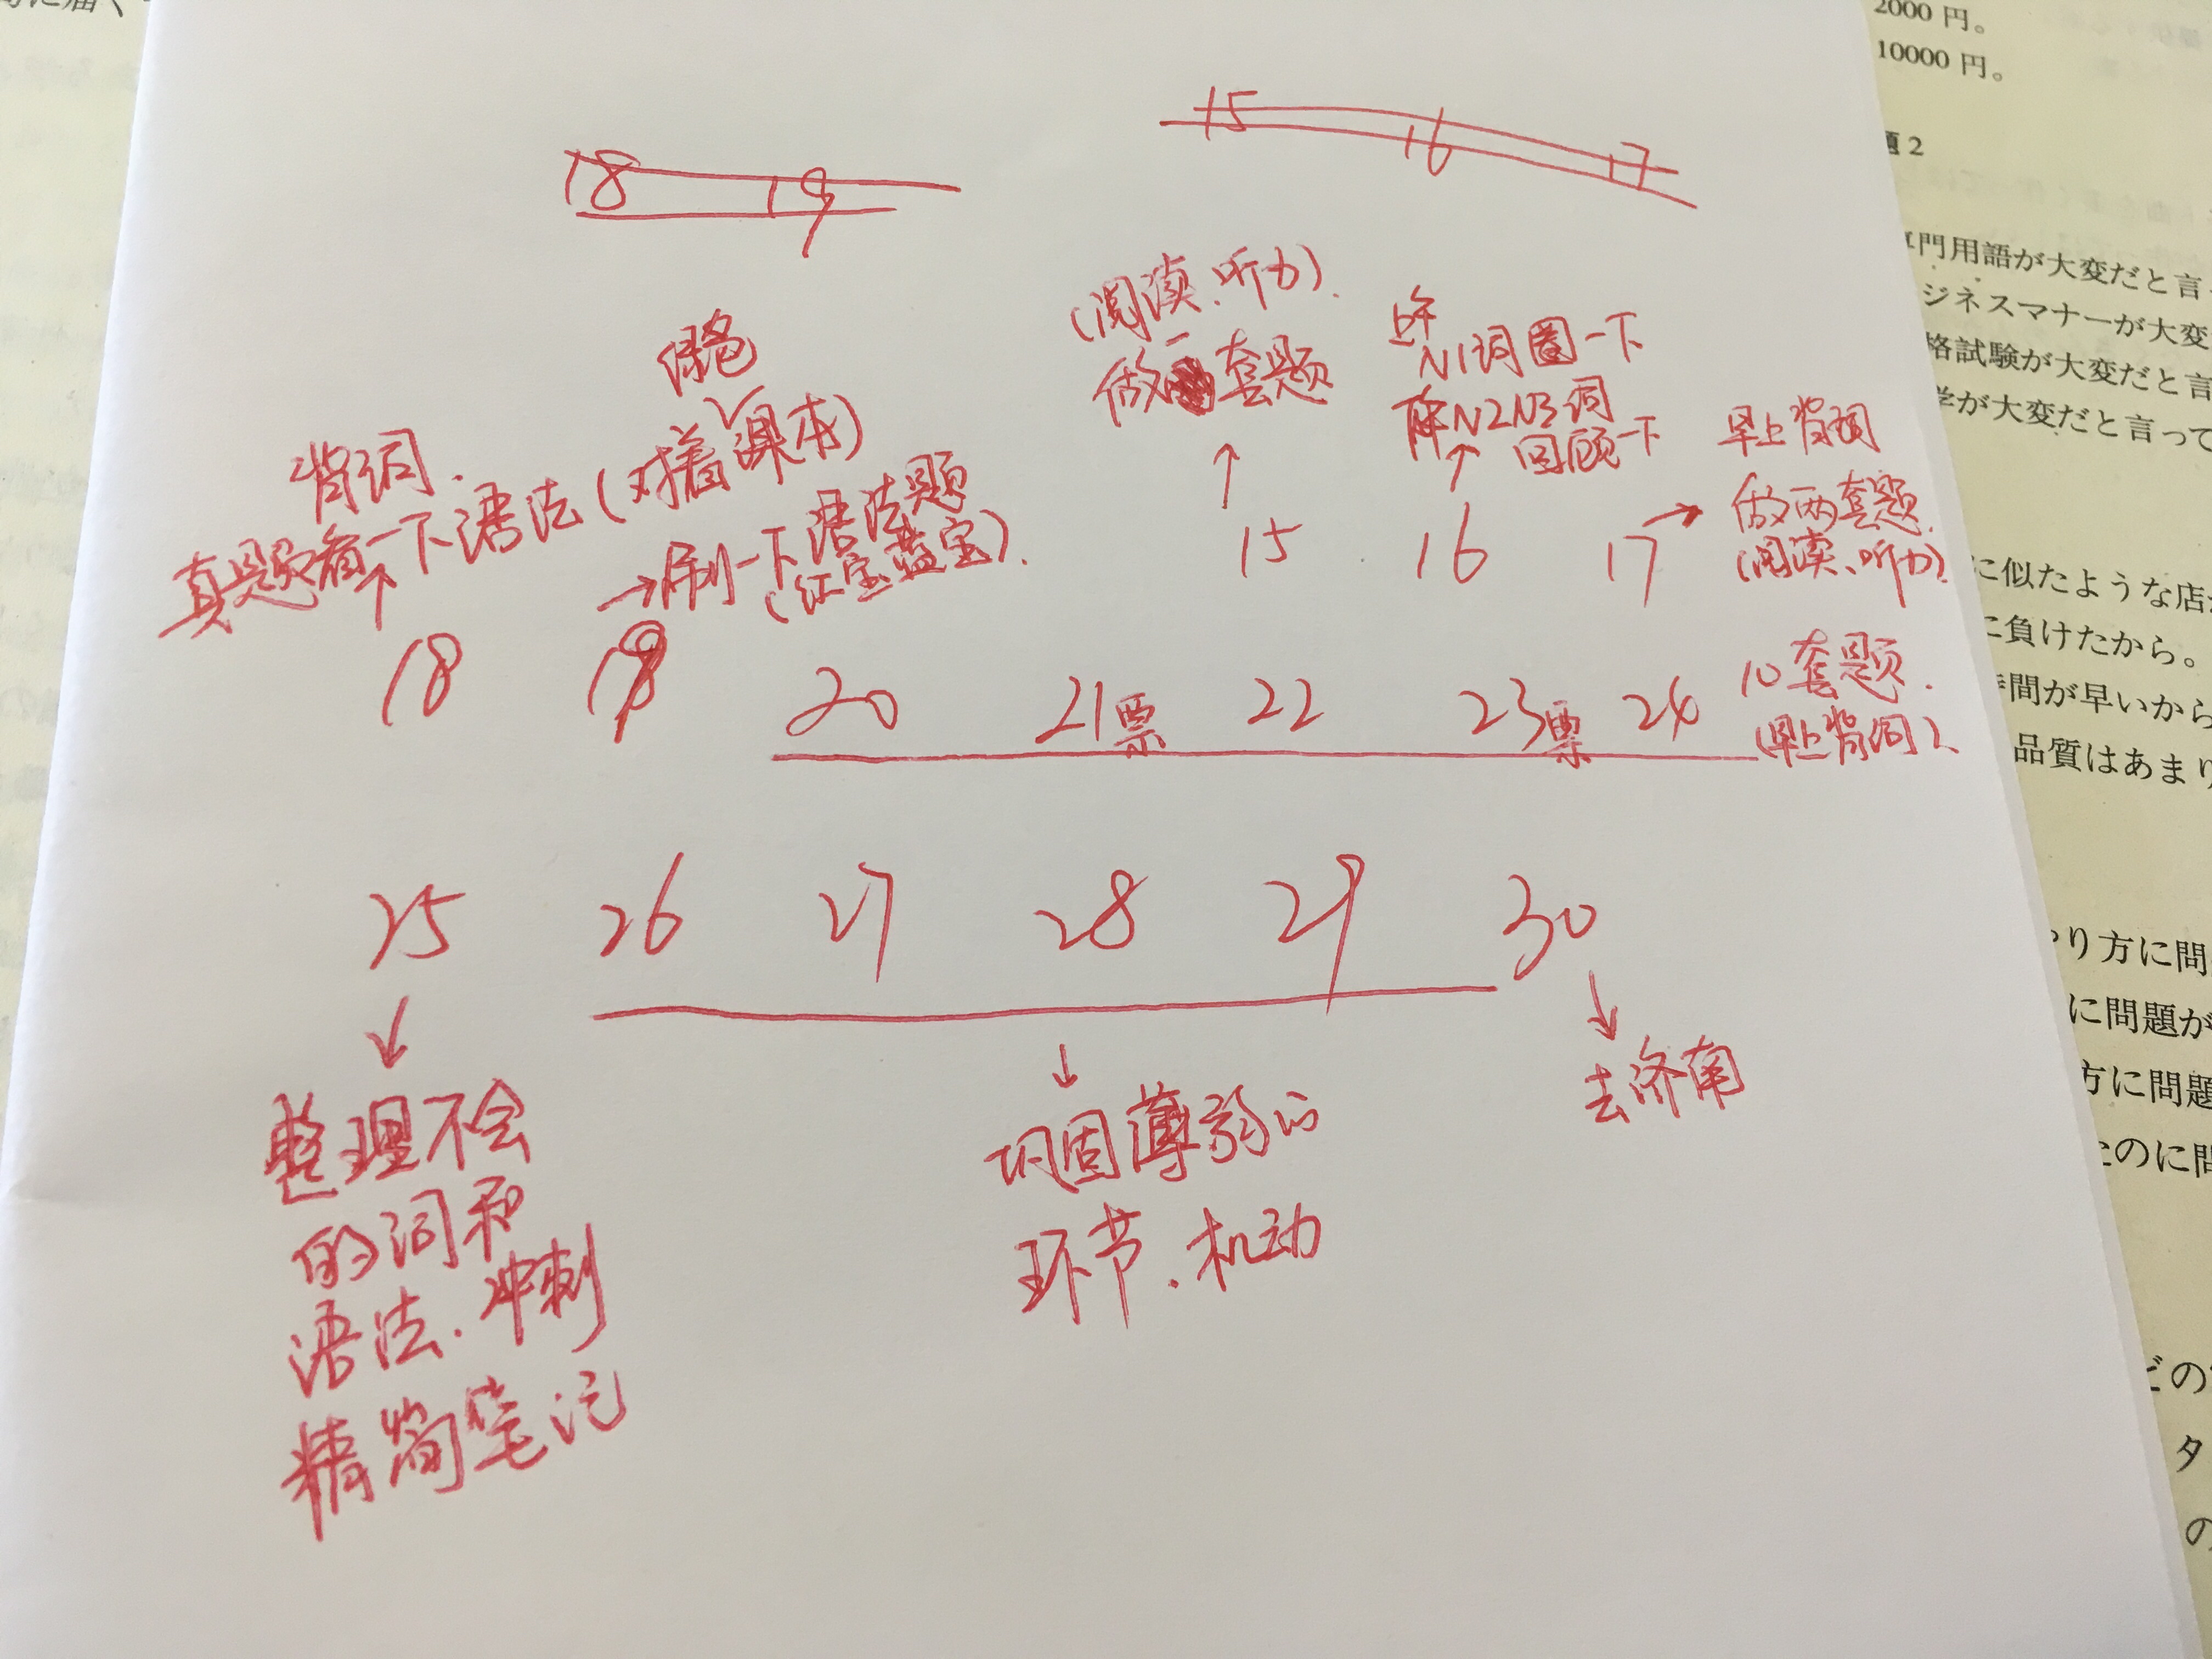 2000 円。
10000 円。
題 2
門用語が大変だと言
ジネスマナーが大変
格試験が大変だと言
学が大変だと言って
に似たような店
に負けたから。
時間が早いから
品質はあまり
やり方に問
に問題が
方に問題
たのに問
どの
タ
の
15 16 17
18 19
(阅读、听力).
做一套题
上午
N1词圈一下
下午N2N3词
回顾一下
早上背词
做两套题.
(阅读、听力)
绿色
背词.
真题看一下语法(对着课本)
刷一下语法题
(红宝蓝宝).
15 16 17
18 19 20 21票 22 23票 24
10套题.
(早上背词)
25 26 27 28 29 30
整理不会
的词和
语法.冲刺
精简笔记
巩固薄弱的
环节.机动
去济南